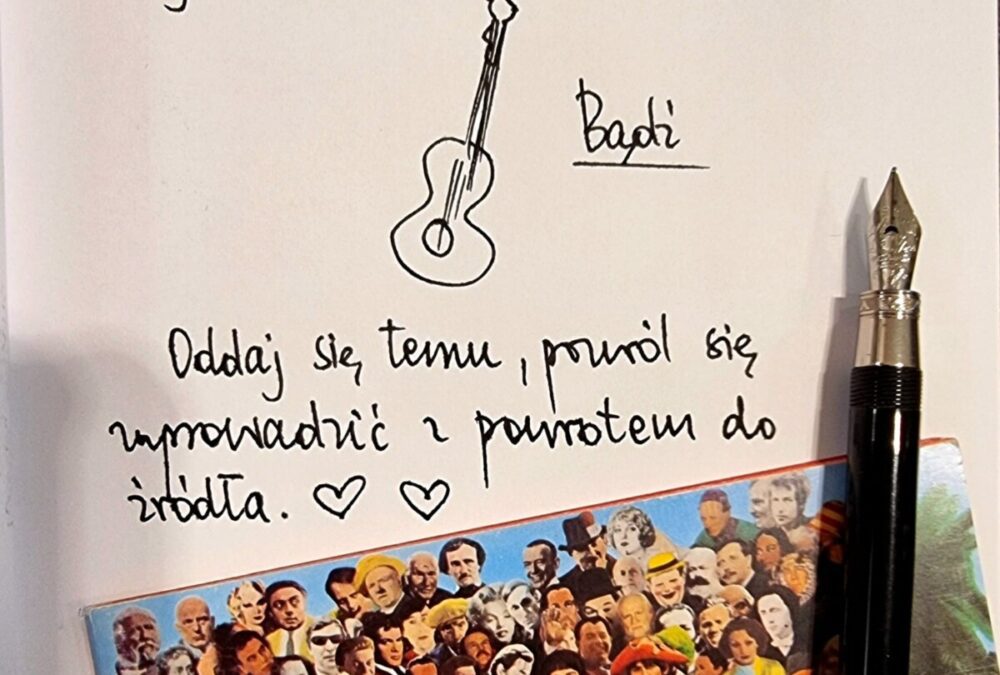 Bądź
Oddaj się temu, pozwól się
wprowadzić z powrotem do
źródła. ♡ ♡